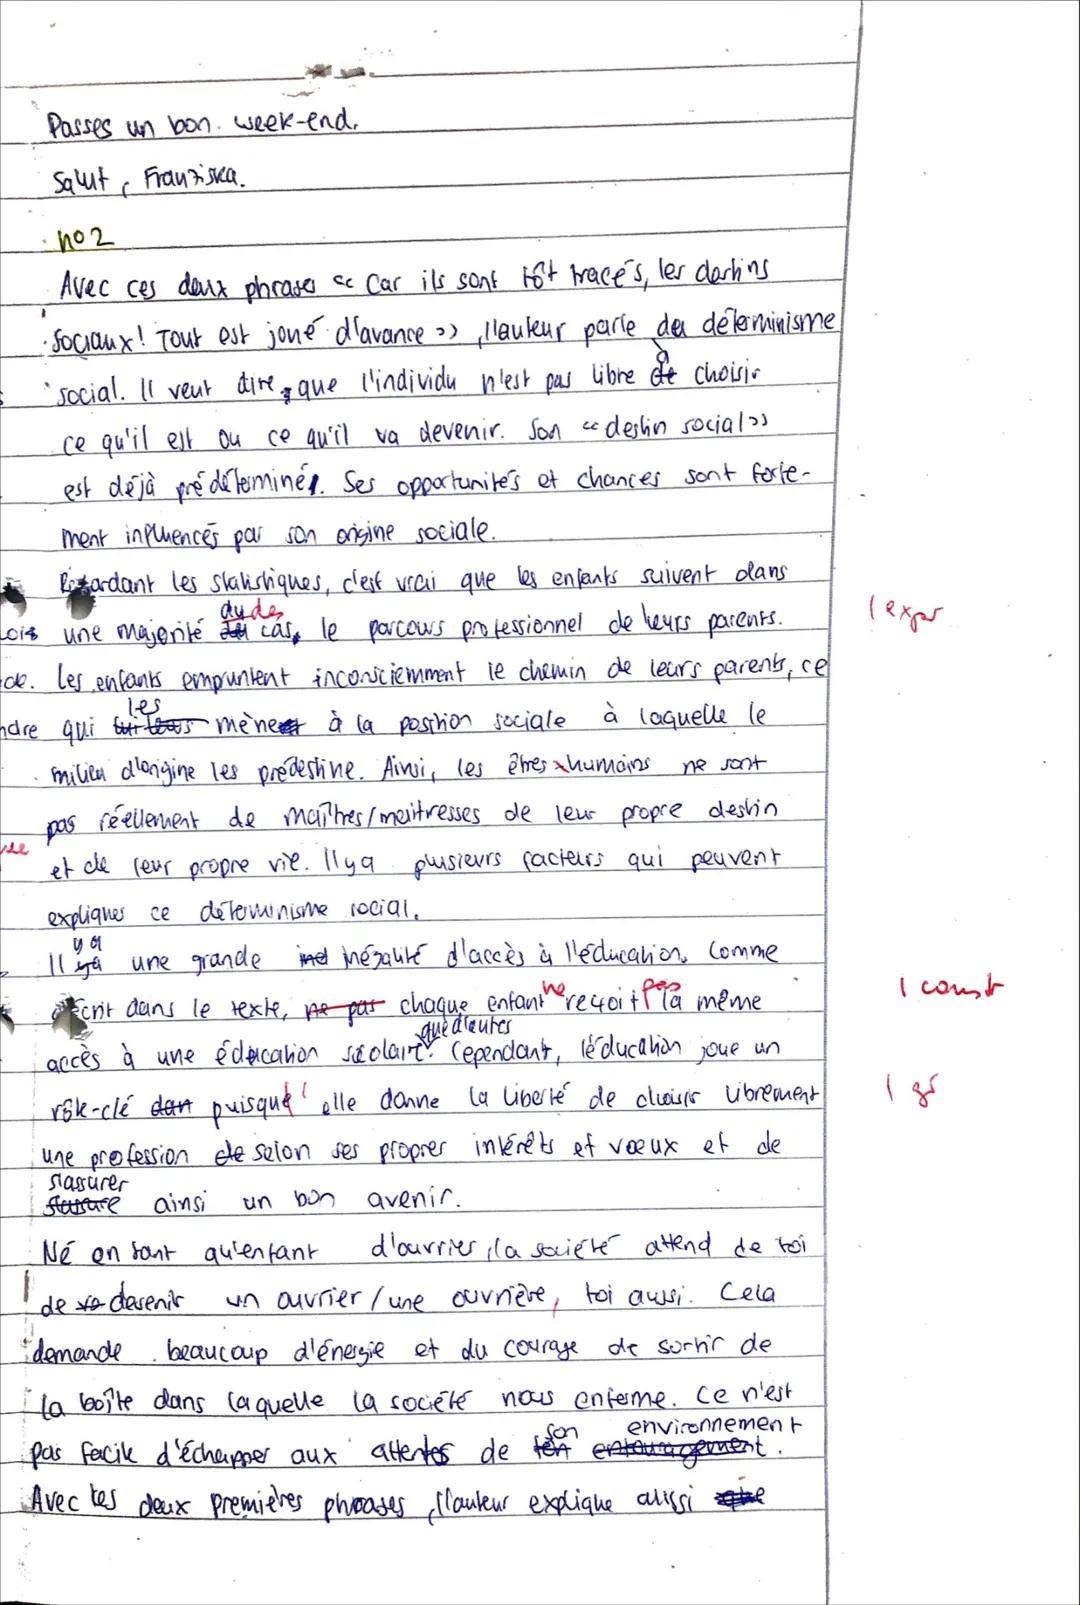 Passes un bon week-end.
Salut, Franziska.
no 2
Avec ces deux phrases « Car ils sont tôt tracés, les destins
sociaux! Tout est joué d'avance », l'auteur parle du déterminisme
social. Il veut dire que l'individu n'est pas libre à choisir
ce qu'il est ou ce qu'il va devenir. Son « destin social »
est déjà prédéterminé. Ses opportunités et chances sont forte-
ment influencés par son origine sociale.
Regardant les statistiques, c'est vrai que les enfants suivent dans
des
ois une majorité du cas, le parcours professionnel de leurs parents.
1 expr
de. Les enfants empruntent inconsciemment le chemin de leurs parents, ce
les
ndre qui mène à la position sociale à laquelle le
milieu d'origine les prédestine. Ainsi, les êtres humains ne sont
pas réellement de maîtres/maitresses de leur propre destin
et de leur propre vie. Il y a plusieurs facteurs qui peuvent
expliques ce déterminisme social.
Il y a une grande inégalité d'accès à l'éducation. Comme
écrit dans le texte, ne pas chaque enfant ne reçoit pas la même
1 const
que d'autres
accès à une éducation scolaire. Cependant, l'éducation joue un
rôle-clé puisqu'elle donne la liberté de choisir librement
1 gr
une profession selon ses propres intérêts et vœux et de
s'assurer ainsi un bon avenir.
Né en tant qu'enfant d'ouvrier, la société attend de toi
de devenir un ouvrier/une ouvrière, toi aussi. Cela
demande beaucoup d'énergie et du courage de sortir de
la boîte dans laquelle la société nous enferme. Ce n'est
pas facile d'échapper aux attentes de son environnement.
Avec les deux premières phrases, l'auteur explique aussi